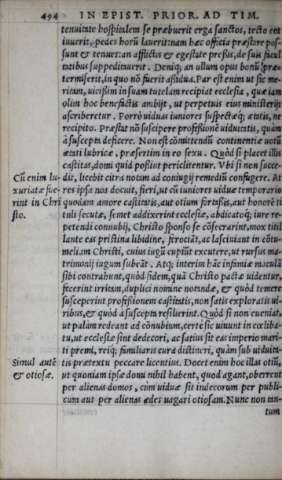 494 IN EPIST. PRIOR. AD TIM.
tenuitate hospitalem se præbuerit erga sanctos, tecto eos
iuuerit, pedes horū lauerit: nam hæc officia præstare pos-
sunt & tenues: an afflictis & egestate pressis, de suis facul
tatibus suppeditauerit. Deniq; an ullum opus bonū præ-
termiserit, in quo nō fuerit assidua. Par est enim ut sic me-
ritam, uicissim in suam tutelam recipiat ecclesia, quæ iam
olim hoc beneficijs ambijt, ut perpetuis eius ministerijs
ascriberetur. Porrò uiduas iuniores suspectæq; ætatis, ne
recipito. Præstat nō suscipere professionē uiduitatis, quàm
à susceptu deficere. Non est cōmittendū continentiæ uotū
ætati lubricæ, præsertim in eo sexu. Quòd si placet illis
castitas, domi quid possint periclitentur. Vbi si non succe-
Cū enim lu- dit, licebit citra notam ad coniugij remediū confugere. At
xuriatæ fue- res ipsa nos docuit, fieri, ut cū iuniores uiduæ temporario
rint in Chri quodam amore castitatis, aut otium fortassis, aut honorē ti
sto. tuli secutæ, semet addixerint ecclesiæ, abdicatoq; iure re-
petendi connubij, Christo sponso se cōsecrarint, mox titil
lante eas pristina libidine, ferociāt, ac lasciuiant in cōtu-
meliam Christi, cuius iugū cupiūt excutere, ut rursus ma-
trimonij iugum subeāt. Atq; interim hæc infamiæ maculā
sibi contrahunt, quòd fidem, quā Christo pactæ uidentur,
fecerint irritam, duplici nomine notandæ, & quòd temere
susceperint professionem castitatis, non satis exploratis ui-
ribus, & quòd à suscepta resilierint. Quòd si non eueniat,
ut palàm redeant ad cōnubium, certè sic uiuunt in cœliba-
tu, ut ecclesiæ sint dedecori, ac satius sit eas imperio mari-
ti premi, reiq; familiaris cura distineri, quàm sub uiduita-
Simul autē tis prætextu peccare licentius. Docet enim hoc illas otiū,
& otiosæ. ut quoniam ipsæ domi nihil habent, quod agant, oberrent
per alienas domos, cùm uiduæ sit indecorum per publi-
cum aut per alienas ædes uagari otiosam. Nunc non tan-
tum